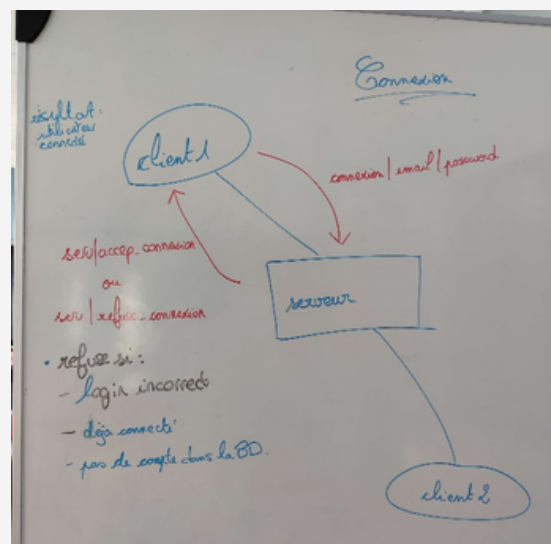 Connexion
résultat:
utilisateur
connecté
client 1
connexion | email | password
serv/accep_connexion
ou
serv | refuse_connexion
serveur
• refuse si:
- login incorrect
- déjà connecté
- pas de compte dans la BD.
client 2